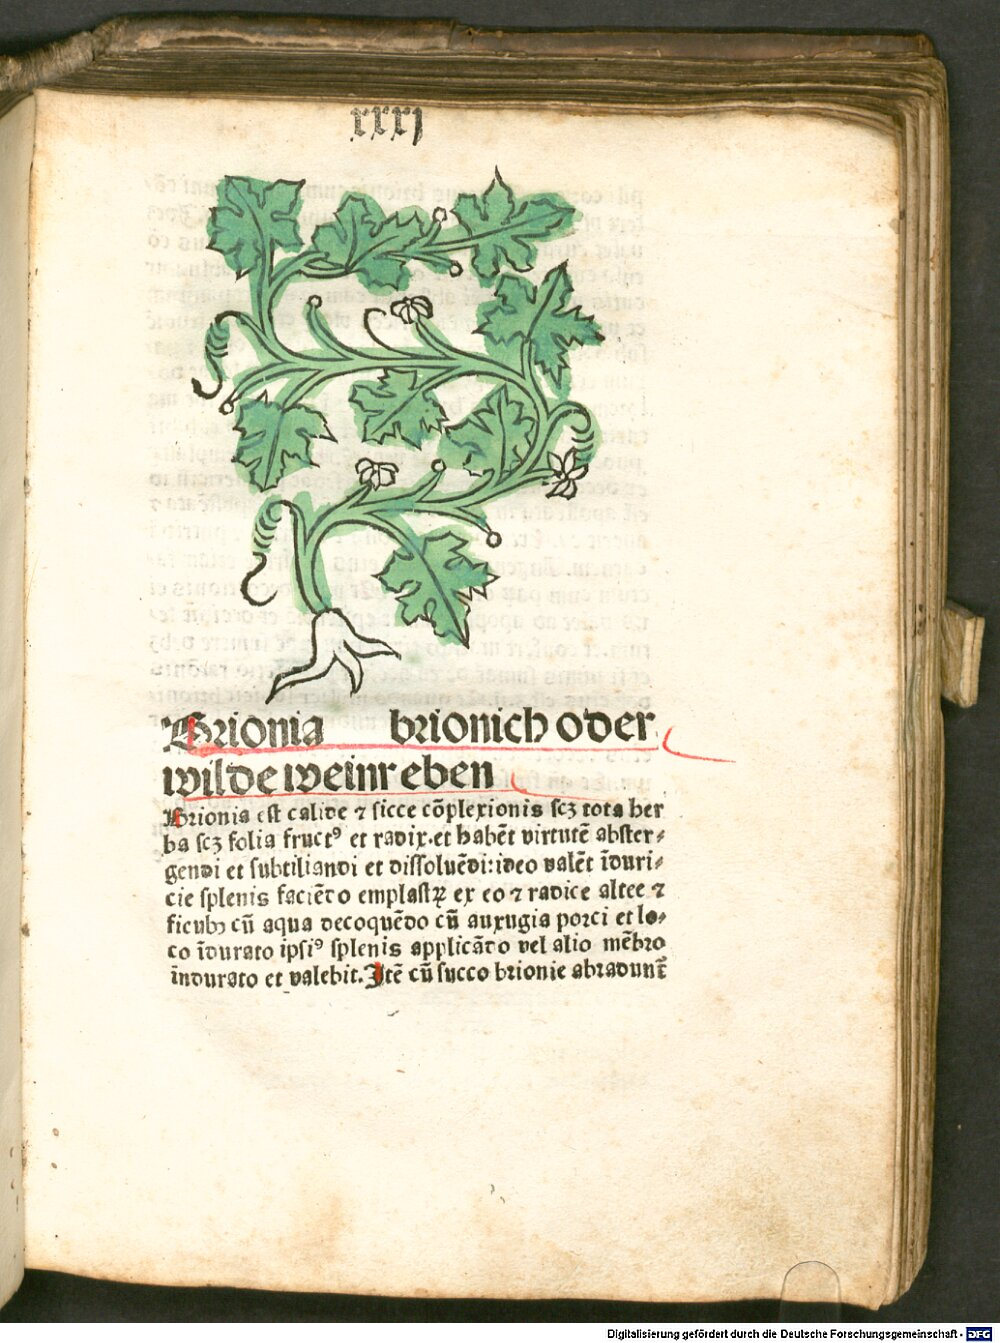 xxxj
Brionia brionich oder
wilde weinreben
Brionia est calide ⁊ sicce cõplexionis scꝫ tota her
ba scꝫ folia fructꝰ et radix. et habẽt virtutẽ abster⸗
gendi et subtiliandi et dissoluẽdi: ideo valẽt ĩduri⸗
cie splenis faciẽdo emplastꝝ ex eo ⁊ radice altee ⁊
ficubꝫ cũ aqua decoquẽdo cũ auxugia porci et lo⸗
co ĩdurato ipsiꝰ splenis applicãdo vel alio mẽbro
ĩndurato et valebit. Itẽ cũ succo brionie abradunt̃
Digitalisierung gefördert durch die Deutsche Forschungsgemeinschaft - DFG